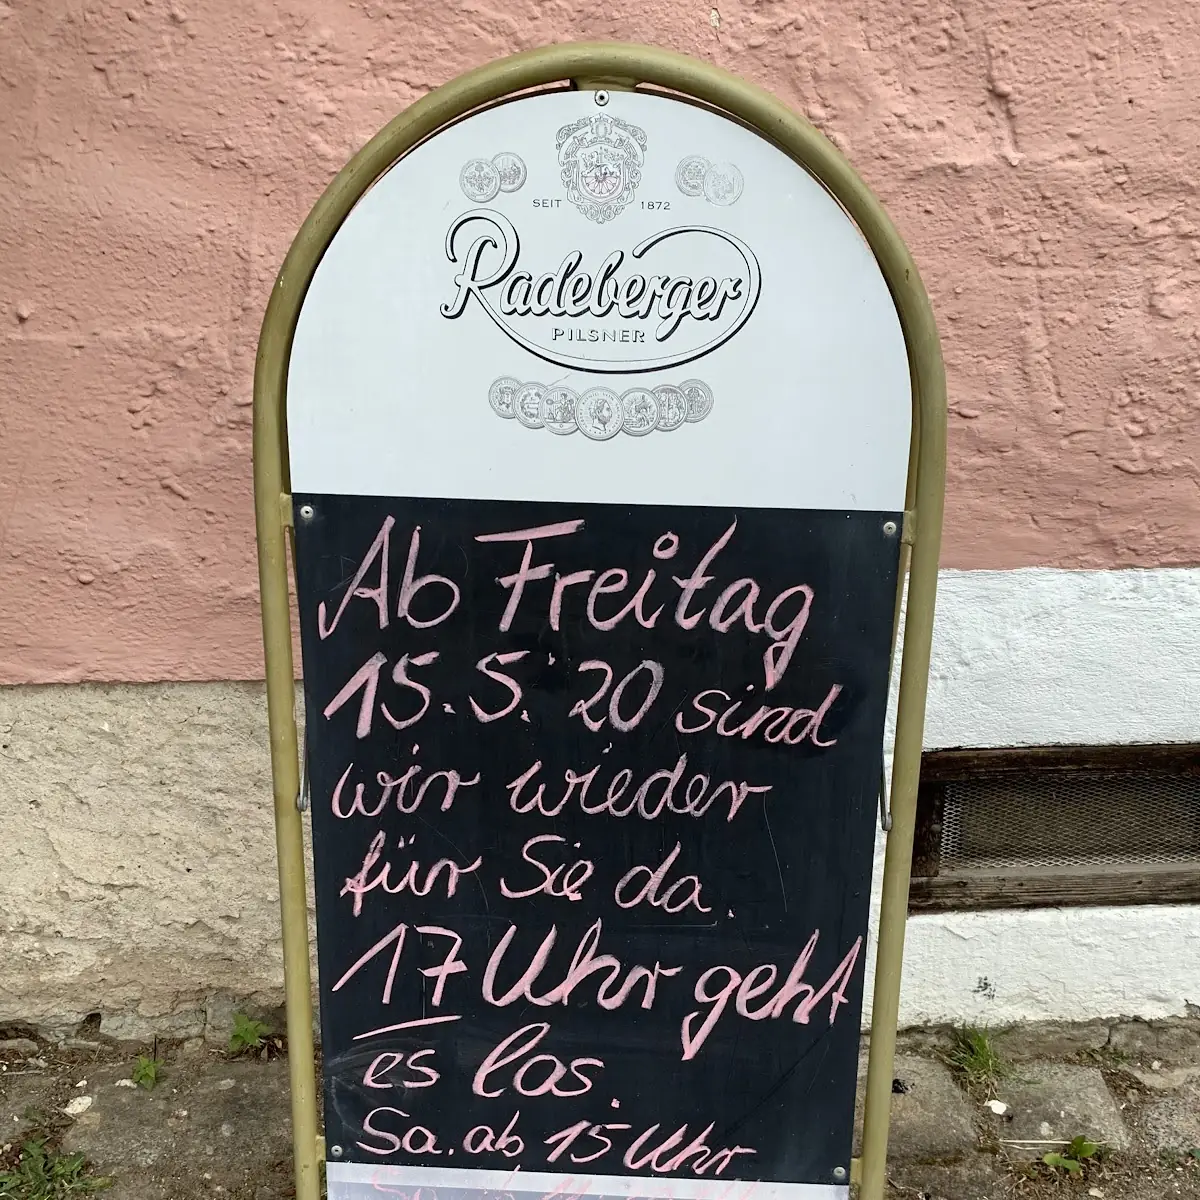 SEIT 1872
Radeberger
PILSNER
Ab Freitag
15.5.20 sind
wir wieder
für Sie da.
17 Uhr geht
es los.
Sa. ab 15 Uhr